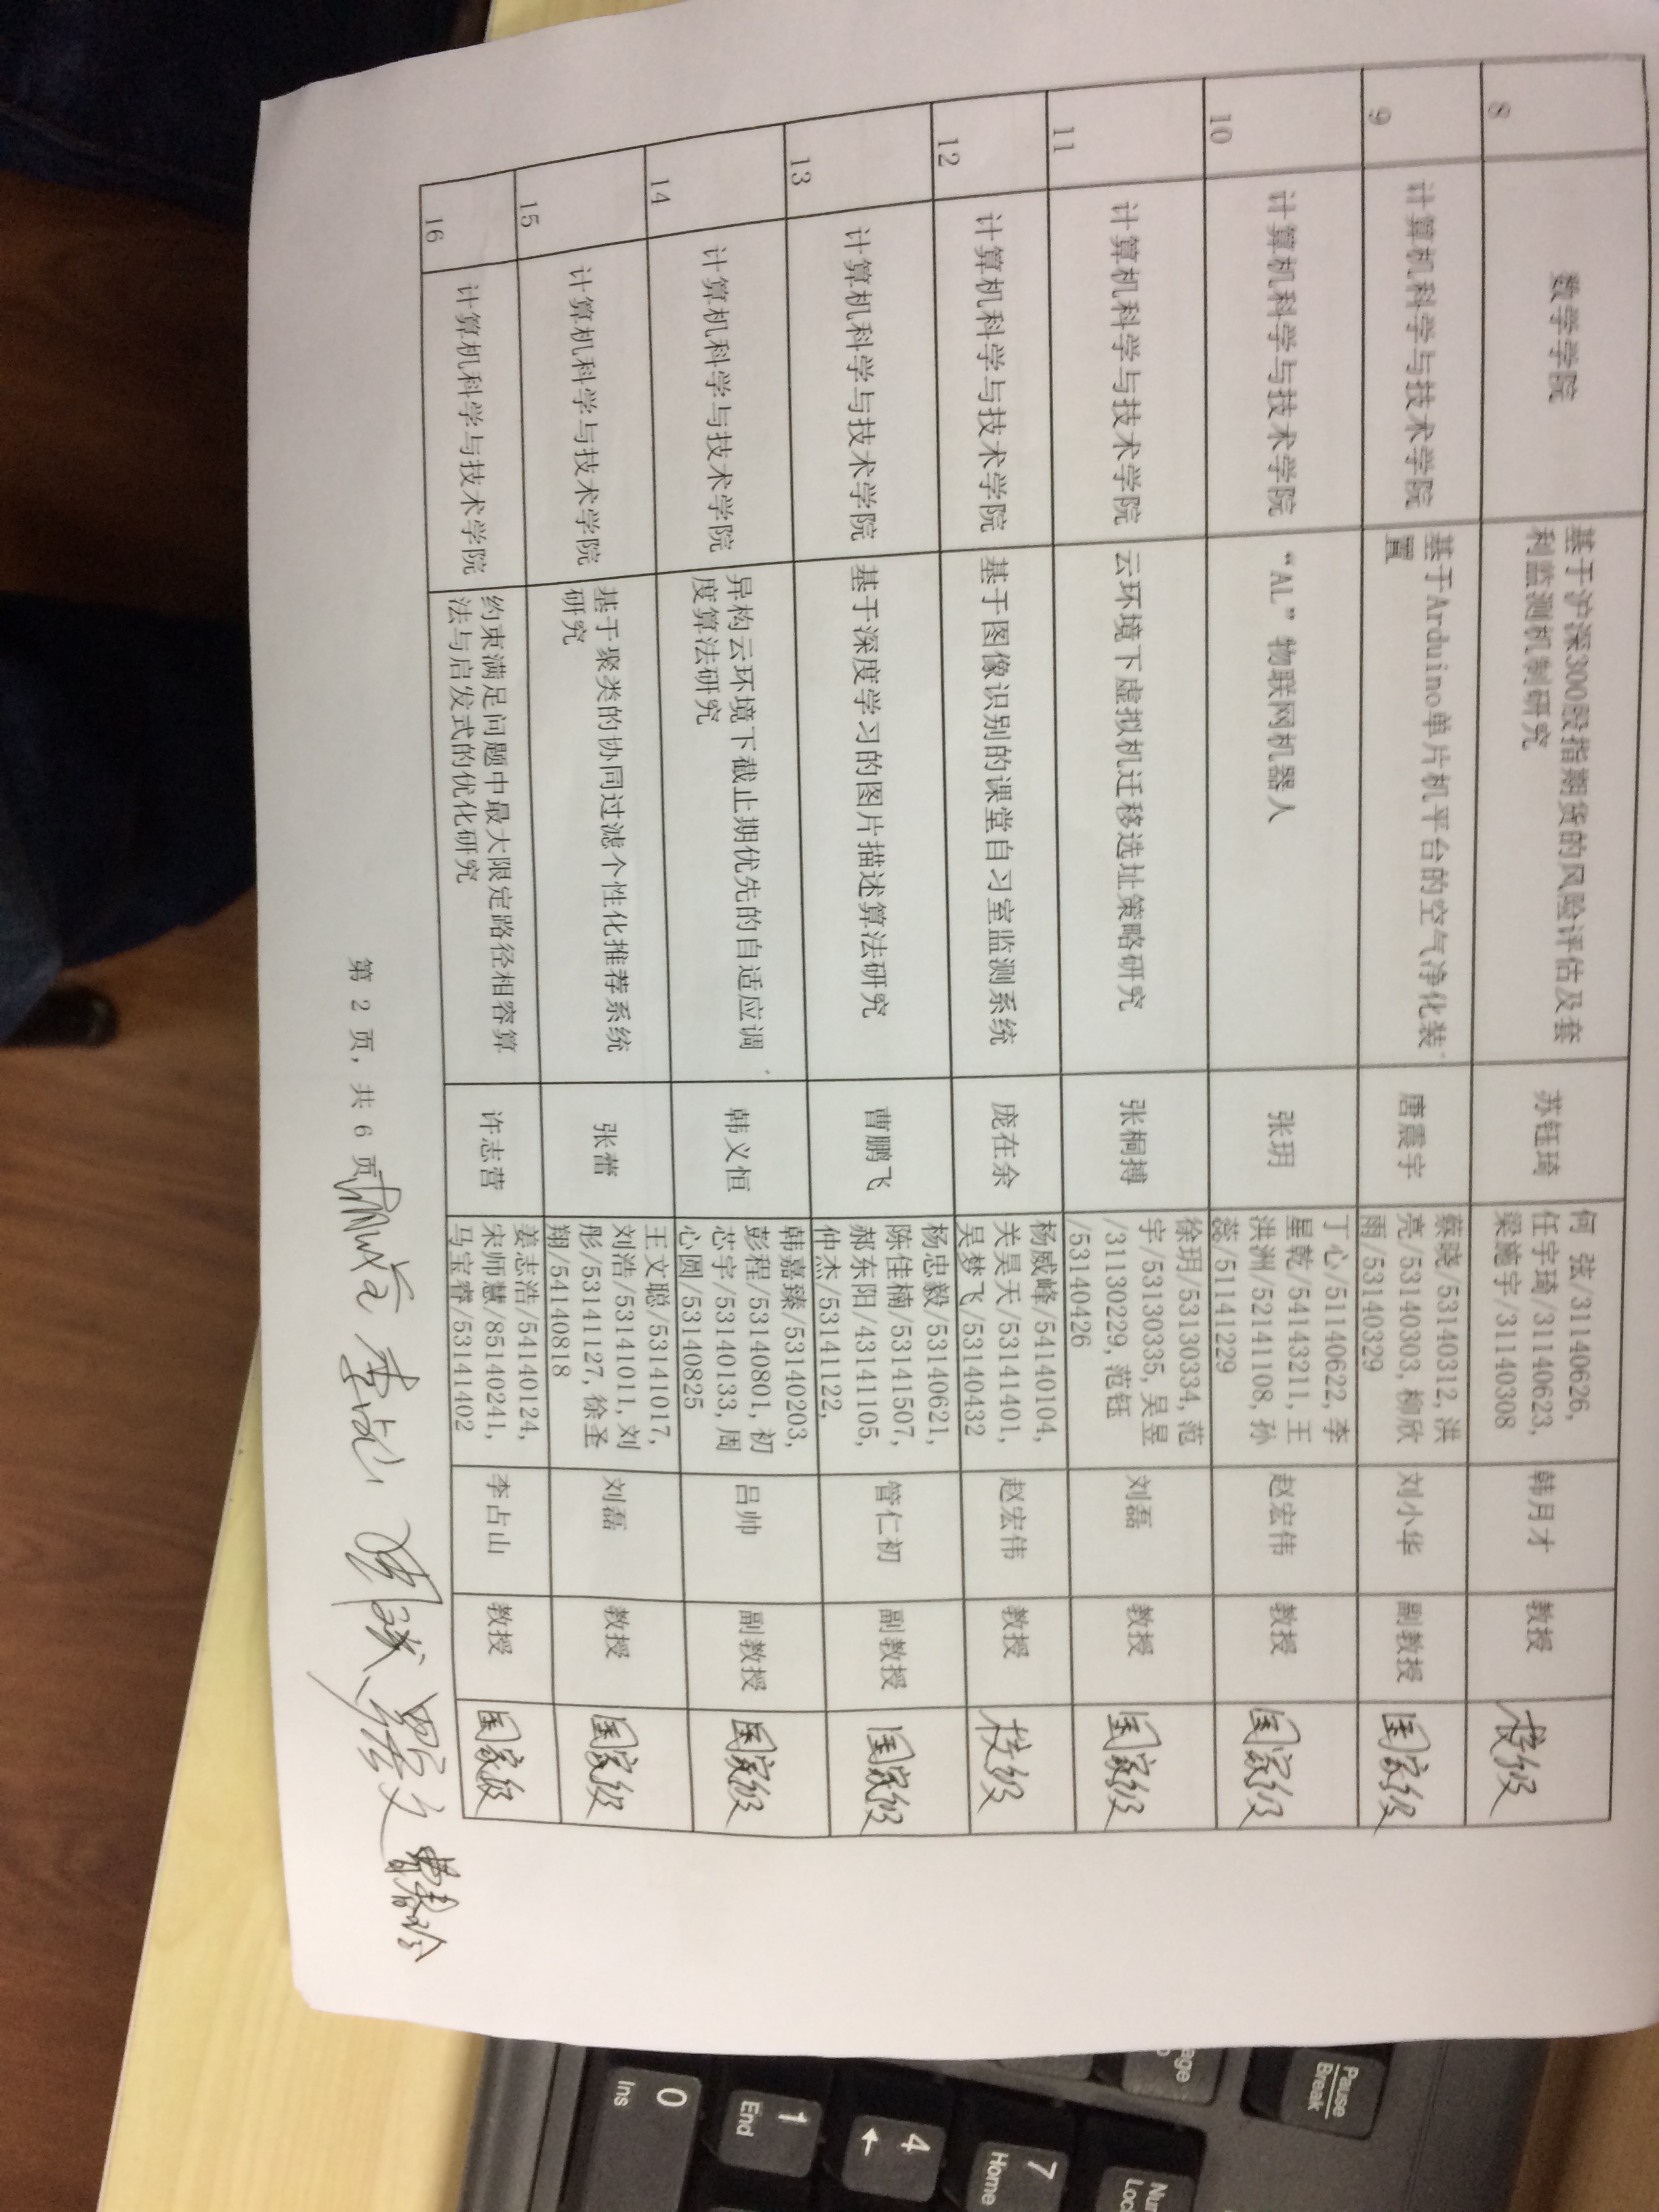 8
数学学院
基于沪深300股指期货的风险评估及套
利监测机制研究
苏钰琦
何 弦/31140626,
任宇琦/31140623,
梁施宇/31140308
韩月才
教授
校级
9
计算机科学与技术学院
基于Arduino单片机平台的空气净化装
置
唐震宇
蔡晓/53140312, 洪
亮/53140303, 柳欣
雨/53140329
刘小华
副教授
国家级
10
计算机科学与技术学院
“AL”物联网机器人
张玥
丁心/51140622, 李
星乾/54143211, 王
洪洲/52141108, 孙
蕊/51141229
赵宏伟
教授
国家级
11
计算机科学与技术学院
云环境下虚拟机迁移选址策略研究
张桐搏
徐玥/53130334, 范
宇/53130335, 吴昱
/31130229, 范钰
/53140426
刘磊
教授
国家级
12
计算机科学与技术学院
基于图像识别的课堂自习室监测系统
庞在余
杨威峰/54140104,
关昊天/53141401,
吴梦飞/53140432
赵宏伟
教授
校级
13
计算机科学与技术学院
基于深度学习的图片描述算法研究
曹鹏飞
杨忠毅/53140621,
陈佳楠/53141507,
郝东阳/43141105,
仲杰/53141122,
管仁初
副教授
国家级
14
计算机科学与技术学院
异构云环境下截止期优先的自适应调
度算法研究
韩义恒
韩嘉臻/53140203,
彭程/53140801, 初
芯宇/53140133, 周
心圆/53140825
吕帅
副教授
国家级
15
计算机科学与技术学院
基于聚类的协同过滤个性化推荐系统
研究
张蕾
王文聪/53141017,
刘浩/53141011, 刘
彤/53141127, 徐圣
翔/54140818
刘磊
教授
国家级
16
计算机科学与技术学院
约束满足问题中最大限定路径相容算
法与启发式的优化研究
许志营
姜志浩/54140124,
宋师慧/85140241,
马宝睿/53141402
李占山
教授
国家级
第 2 页, 共 6 页
李占山
曹春玲
Pause
Break
age
Num
Lock
7
Home
4
←
1
End
0
Ins